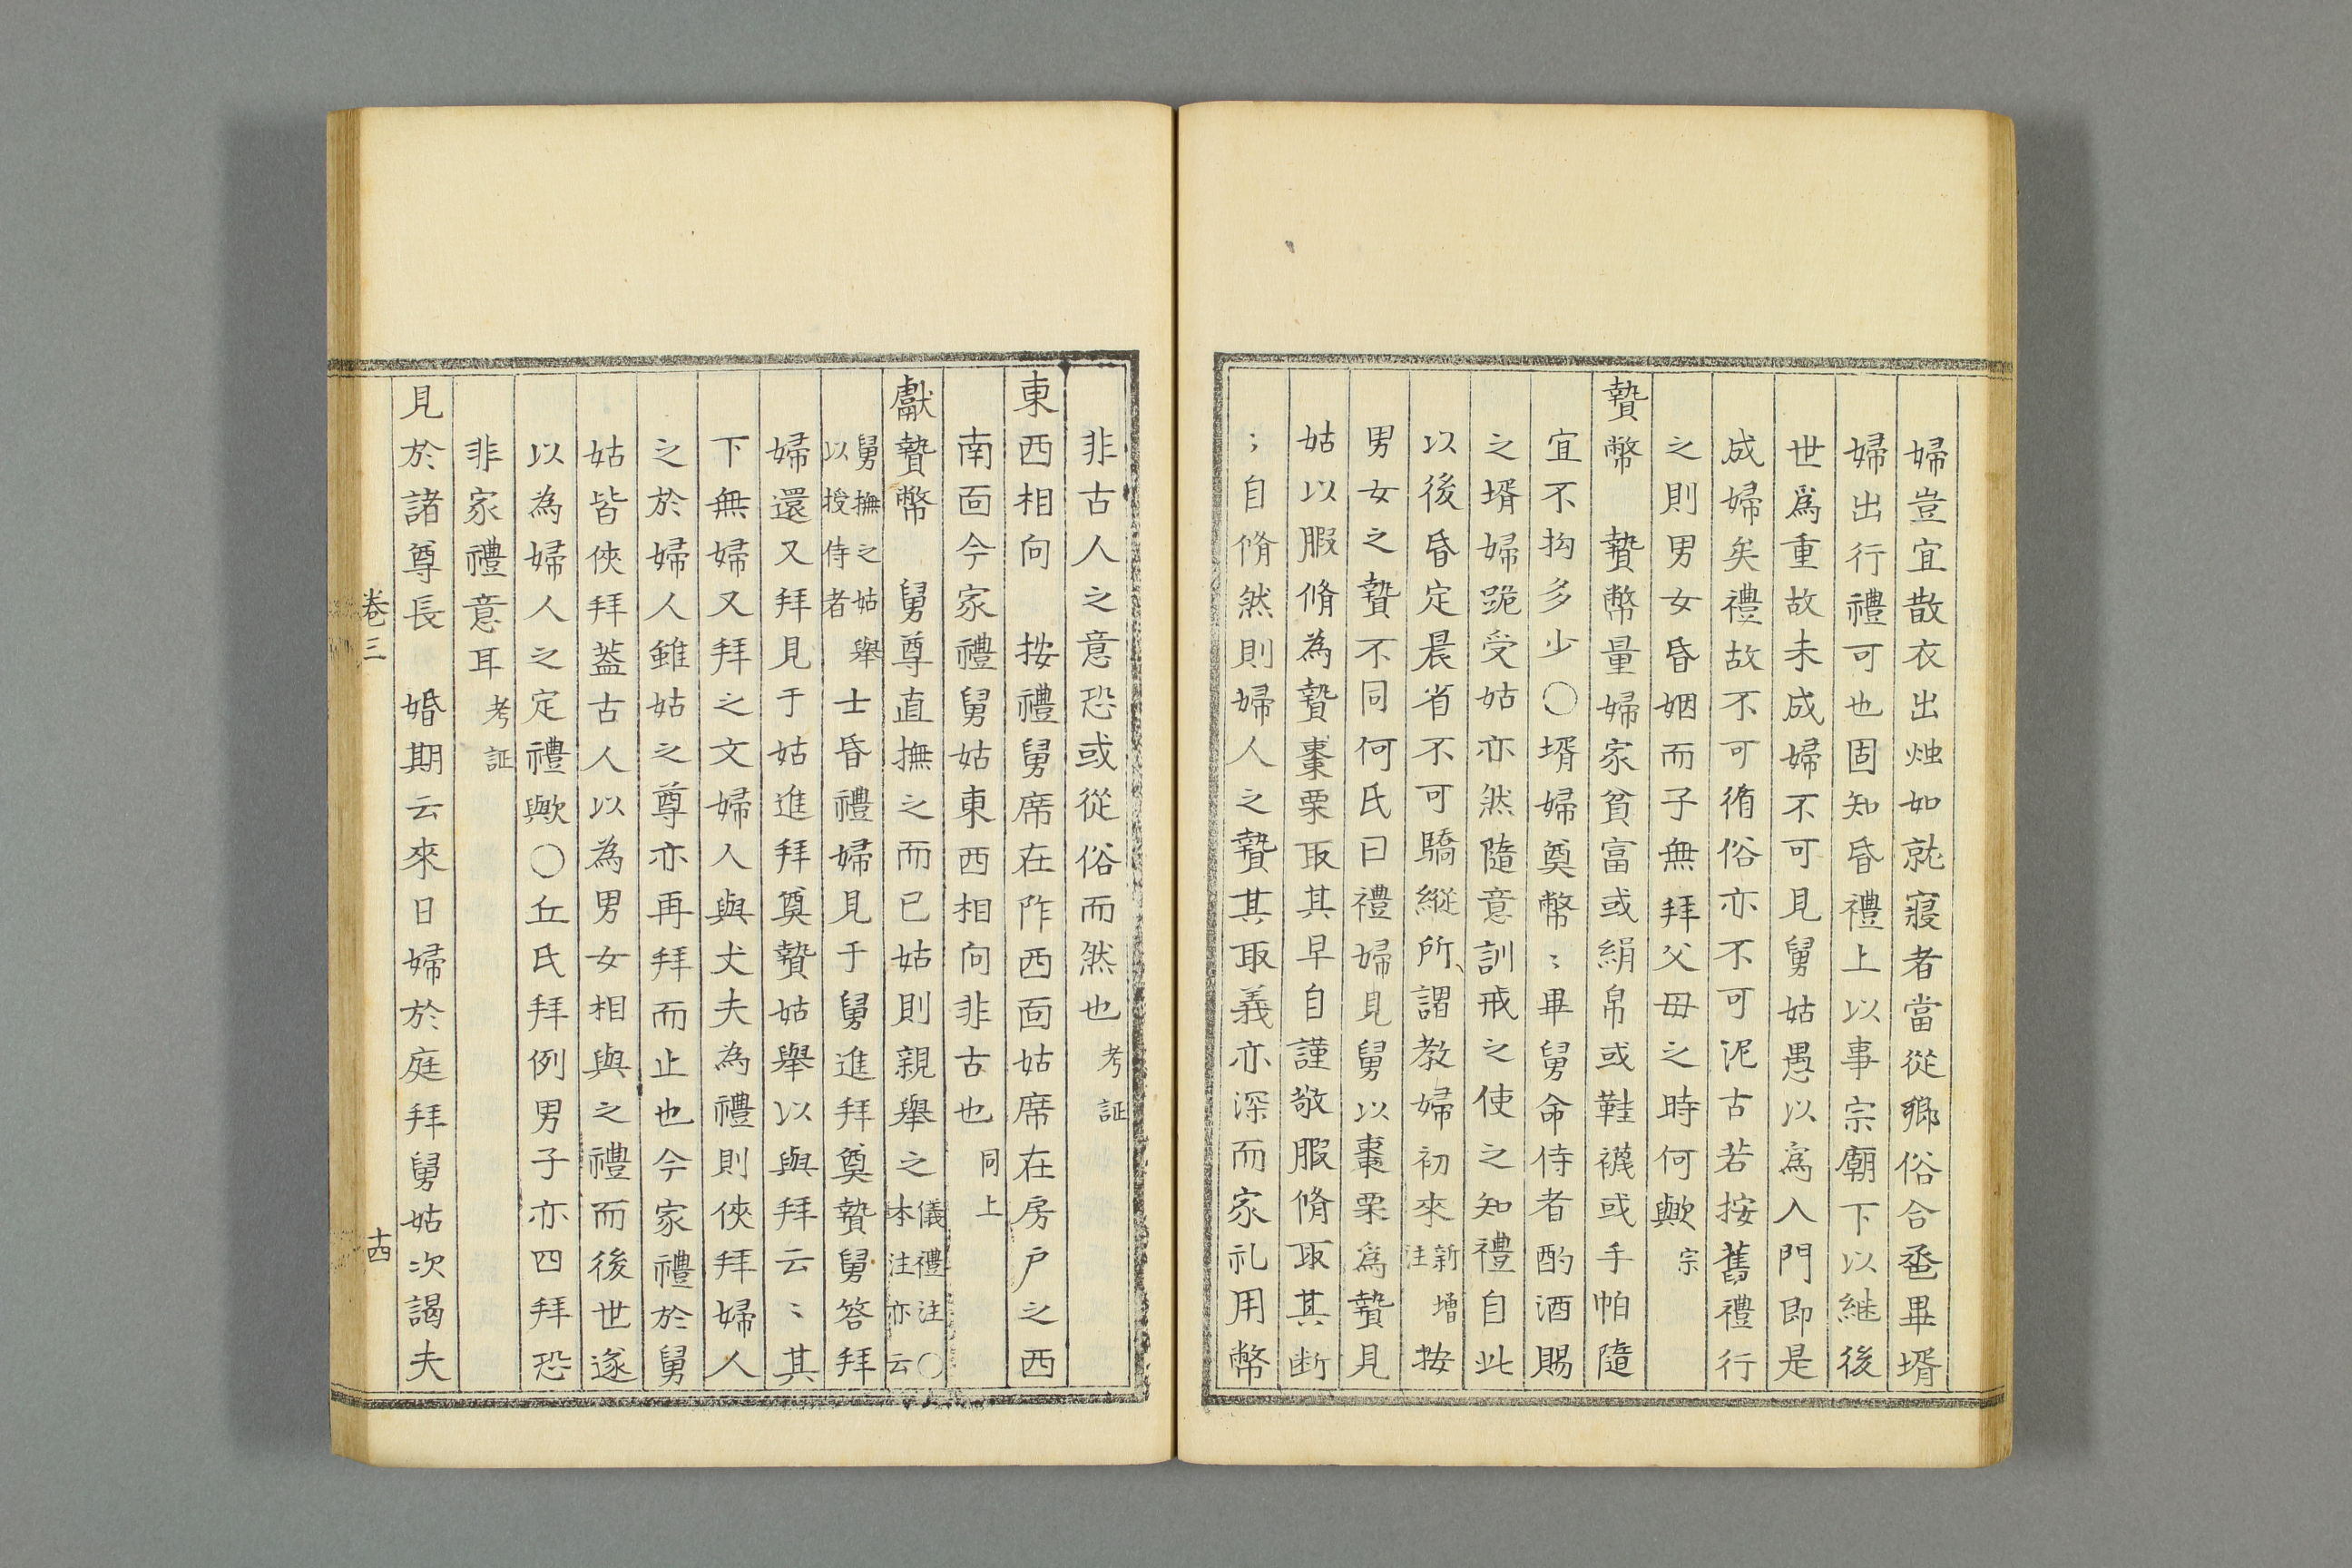 婦豈宜散衣出燭如就寢者當從鄕俗合巹畢壻
婦出行禮可也固知昏禮上以事宗廟下以継後
世爲重故未成婦不可見舅姑愚以爲入門即是
成婦矣禮故不可循俗亦不可泥古若按舊禮行
之則男女昏姻而子無拜父母之時何歟宗
贄幣 贄幣量婦家貧富或絹帛或鞋襪或手帕隨
宜不拘多少○壻婦奠幣〻畢舅命侍者酌酒賜
之壻婦跪受姑亦然隨意訓戒之使之知禮自此
以後昏定晨省不可驕縱所謂教婦初來新增註按
男女之贄不同何氏曰禮婦見舅以棗栗爲贄見
姑以腶脩為贄棗栗取其早自謹敬腶脩取其断
〻自脩然則婦人之贄其取義亦深而家礼用幣
非古人之意恐或從俗而然也考証
東西相向 按禮舅席在阼西面姑席在房户之西
南面今家禮舅姑東西相向非古也同上
獻贄幣 舅尊直撫之而已姑則親舉之儀禮注○本注亦云
舅撫之姑舉以授侍者士昏禮婦見于舅進拜奠贄舅答拜
婦還又拜見于姑進拜奠贄姑舉以與拜云〻其
下無婦又拜之文婦人與丈夫為禮則俠拜婦人
之於婦人雖姑之尊亦再拜而止也今家禮於舅
姑皆俠拜葢古人以為男女相與之禮而後世遂
以為婦人之定禮歟○丘氏拜例男子亦四拜恐
非家禮意耳考証
見於諸尊長 婚期云來日婦於庭拜舅姑次謁夫
卷三
十四